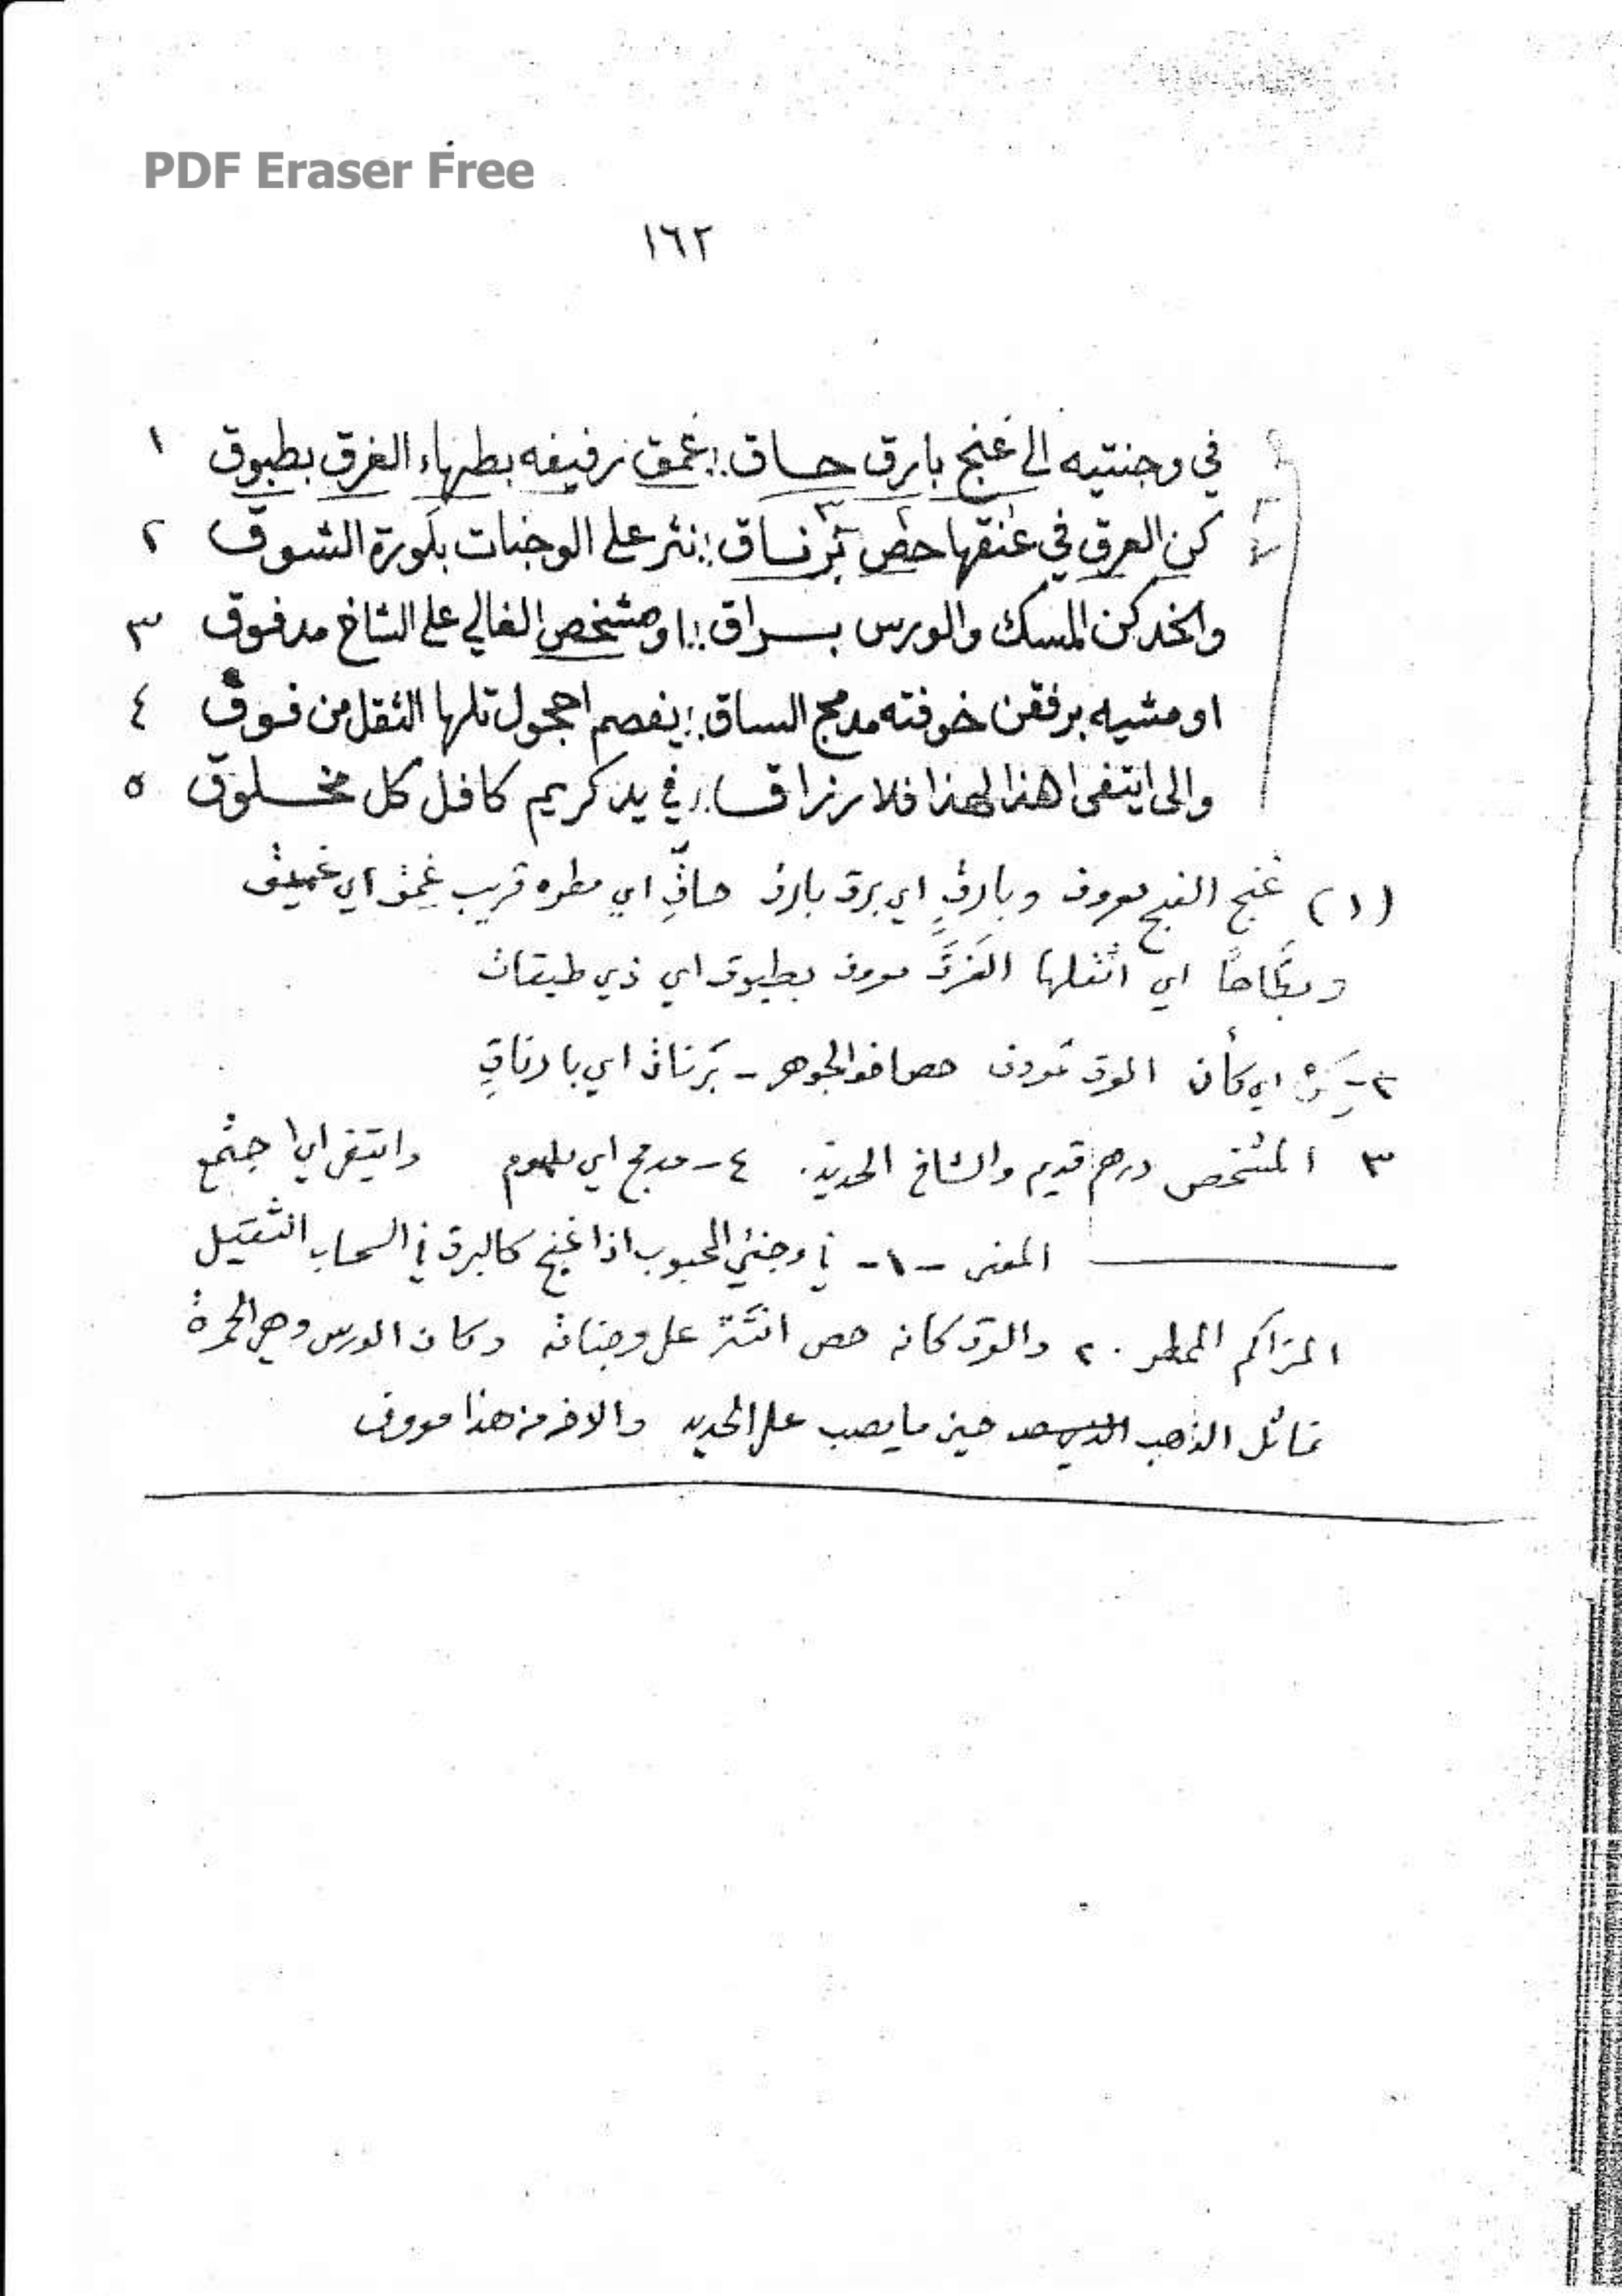 PDF Eraser Free
١٦٢
في وجنتيه الى غنج بارق حاق :: غمق زفيفه بطهاء الغرق بطبوق ١
كن العرق في عنقها حص بَرناق :: نثر على الوجنات بلورة الشوق ٢
والخد كن المسك والورس براق :: او مشخص الغالي على الشاخ مدفوق ٣
او مشيه برفقن خوفته مدمج الساق :: يفصم احجول تلها الثقل من فوق ٤
والى ايتفى هذا لهذا فلا رزاق :: في يد كريم كافل كل مخلوق ٥
(١) غنج الغنج معروف وبارقٍ اي برق بارق حاقِّ اي مطره قريب غمق اي غميق
اي اثقلها الغَرَقَ معروف بطبوق اي ذي طبقات
٢- كن اي كأن العرق معروف حص الجوهر - بَرناق اي
٣ المشخص درهم قديم والشاخ الحديد. ٤ - مدمج اي وايتفى اي اجتمع
المعنى -١- في وجنتي المحبوب اذا غنج كالبرق في السحاب الثقيل
المتراكم الممطر ٢٠ والعرق كانه حص انتثر على وجناته وكان الورس وهي الحمرة
تماثل الذهب حين ما يصب على الحديد والاخر من هذا معروف